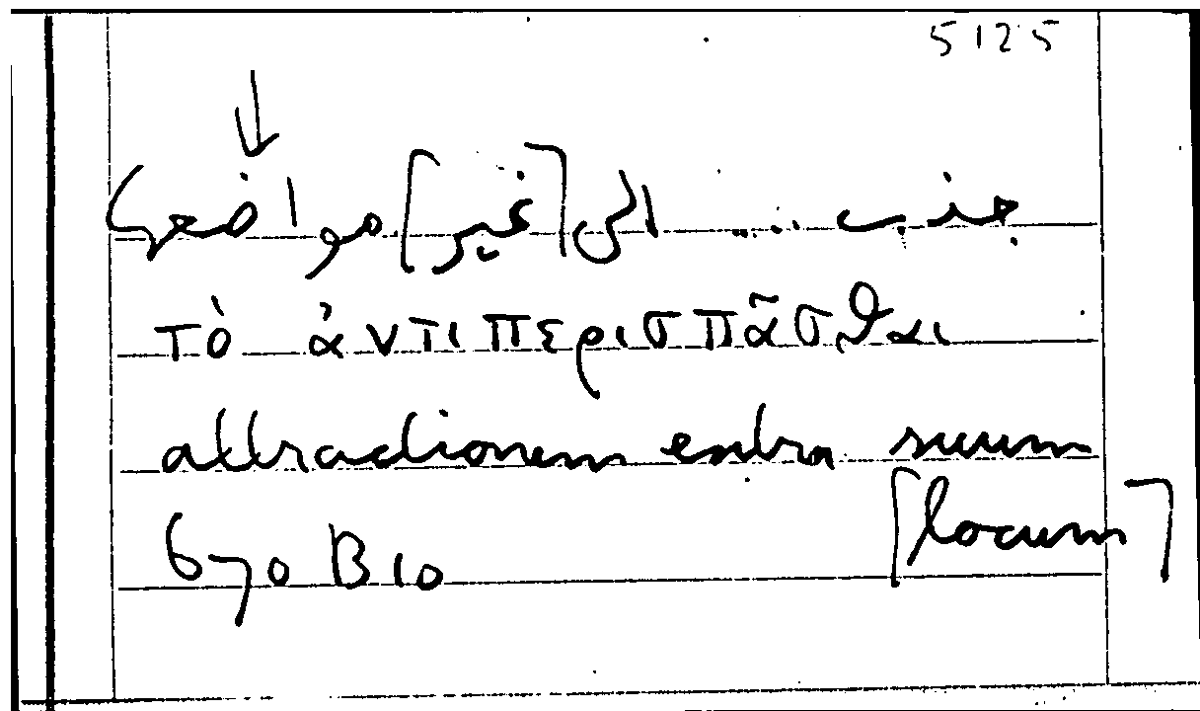 5125
↓
جذب .... الى [غير] مواضعها
τὸ ἀντιπερισπᾶσθαι
attractionem extra suum
[locum]
670 B10